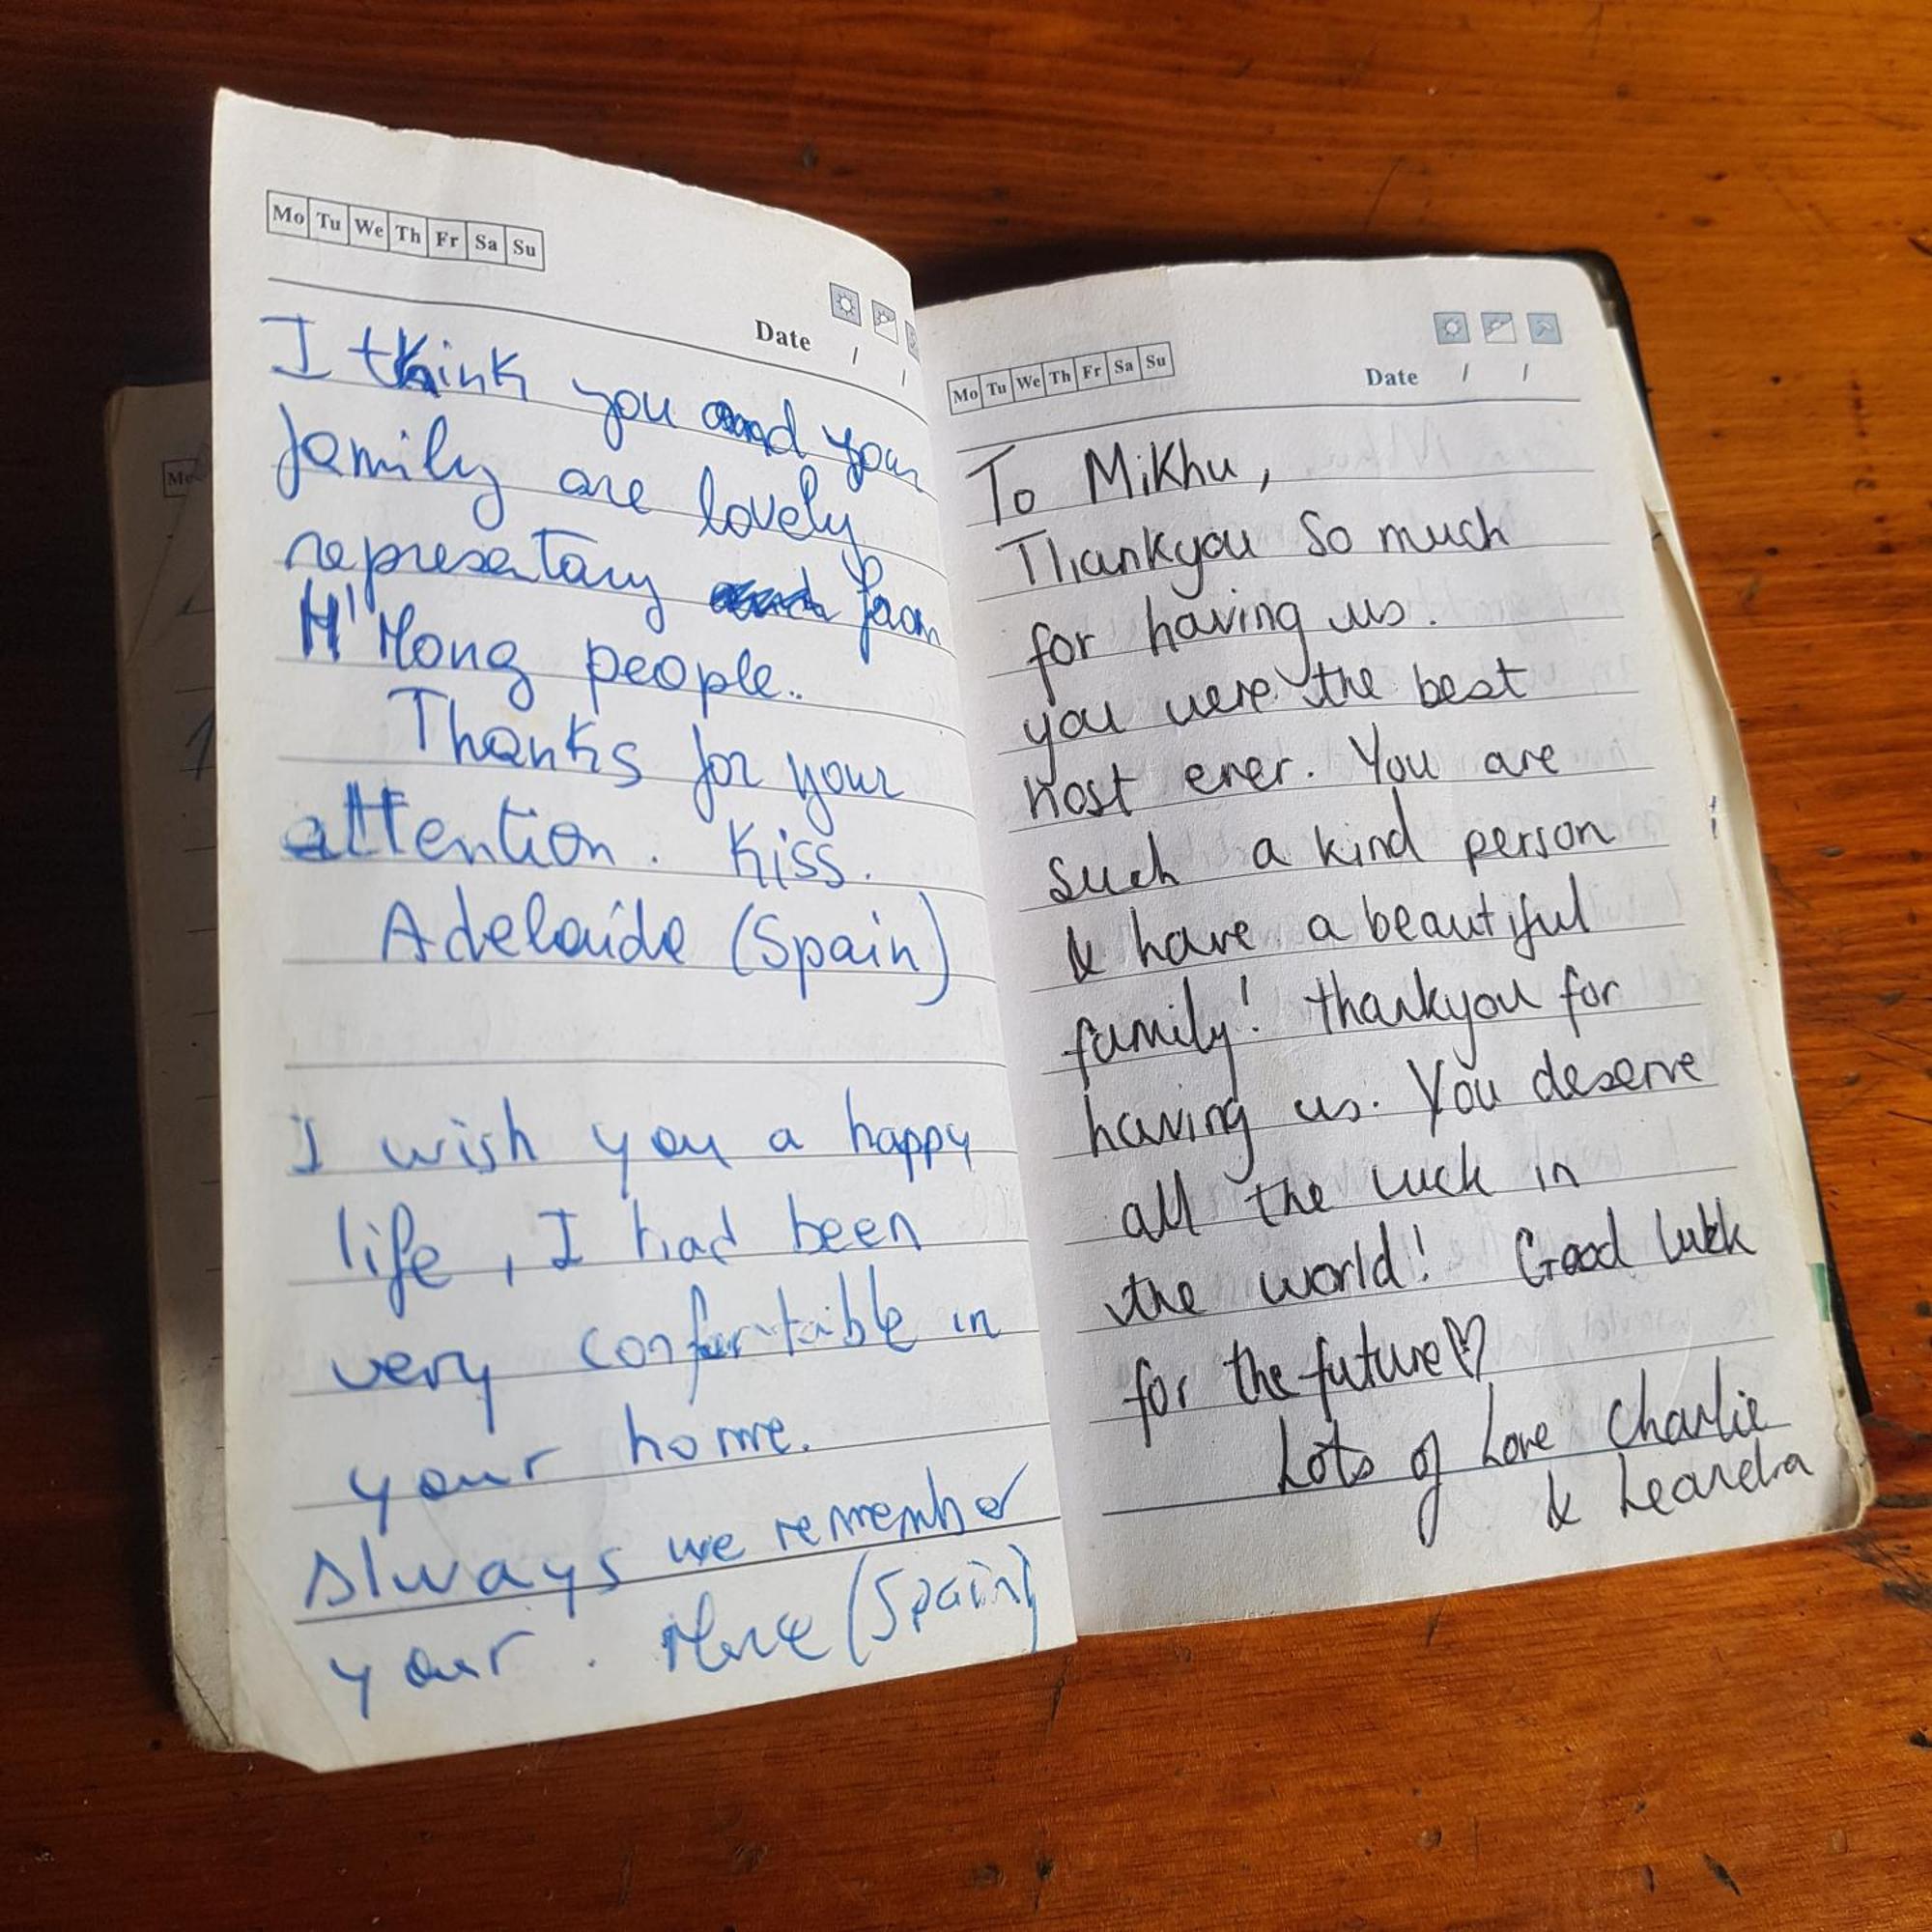 Mo Tu We Th Fr Sa Su
Date / /
I think you and your
family are lovely
representary from
H'Mong people..
Thanks for your
attention. Kiss.
Adelaida (Spain)
I wish you a happy
life, I had been
very confortable in
your home.
Always we remember
your. (Spain)
Mo Tu We Th Fr Sa Su
Date / /
To MiKhu,
Thankyou so much
for having us.
you were the best
host ever. You are
such a kind person
& have a beautiful
family! thankyou for
having us. You deserve
all the luck in
the world! Good luck
for the future♡
Lots of Love Charlie
& Leandra